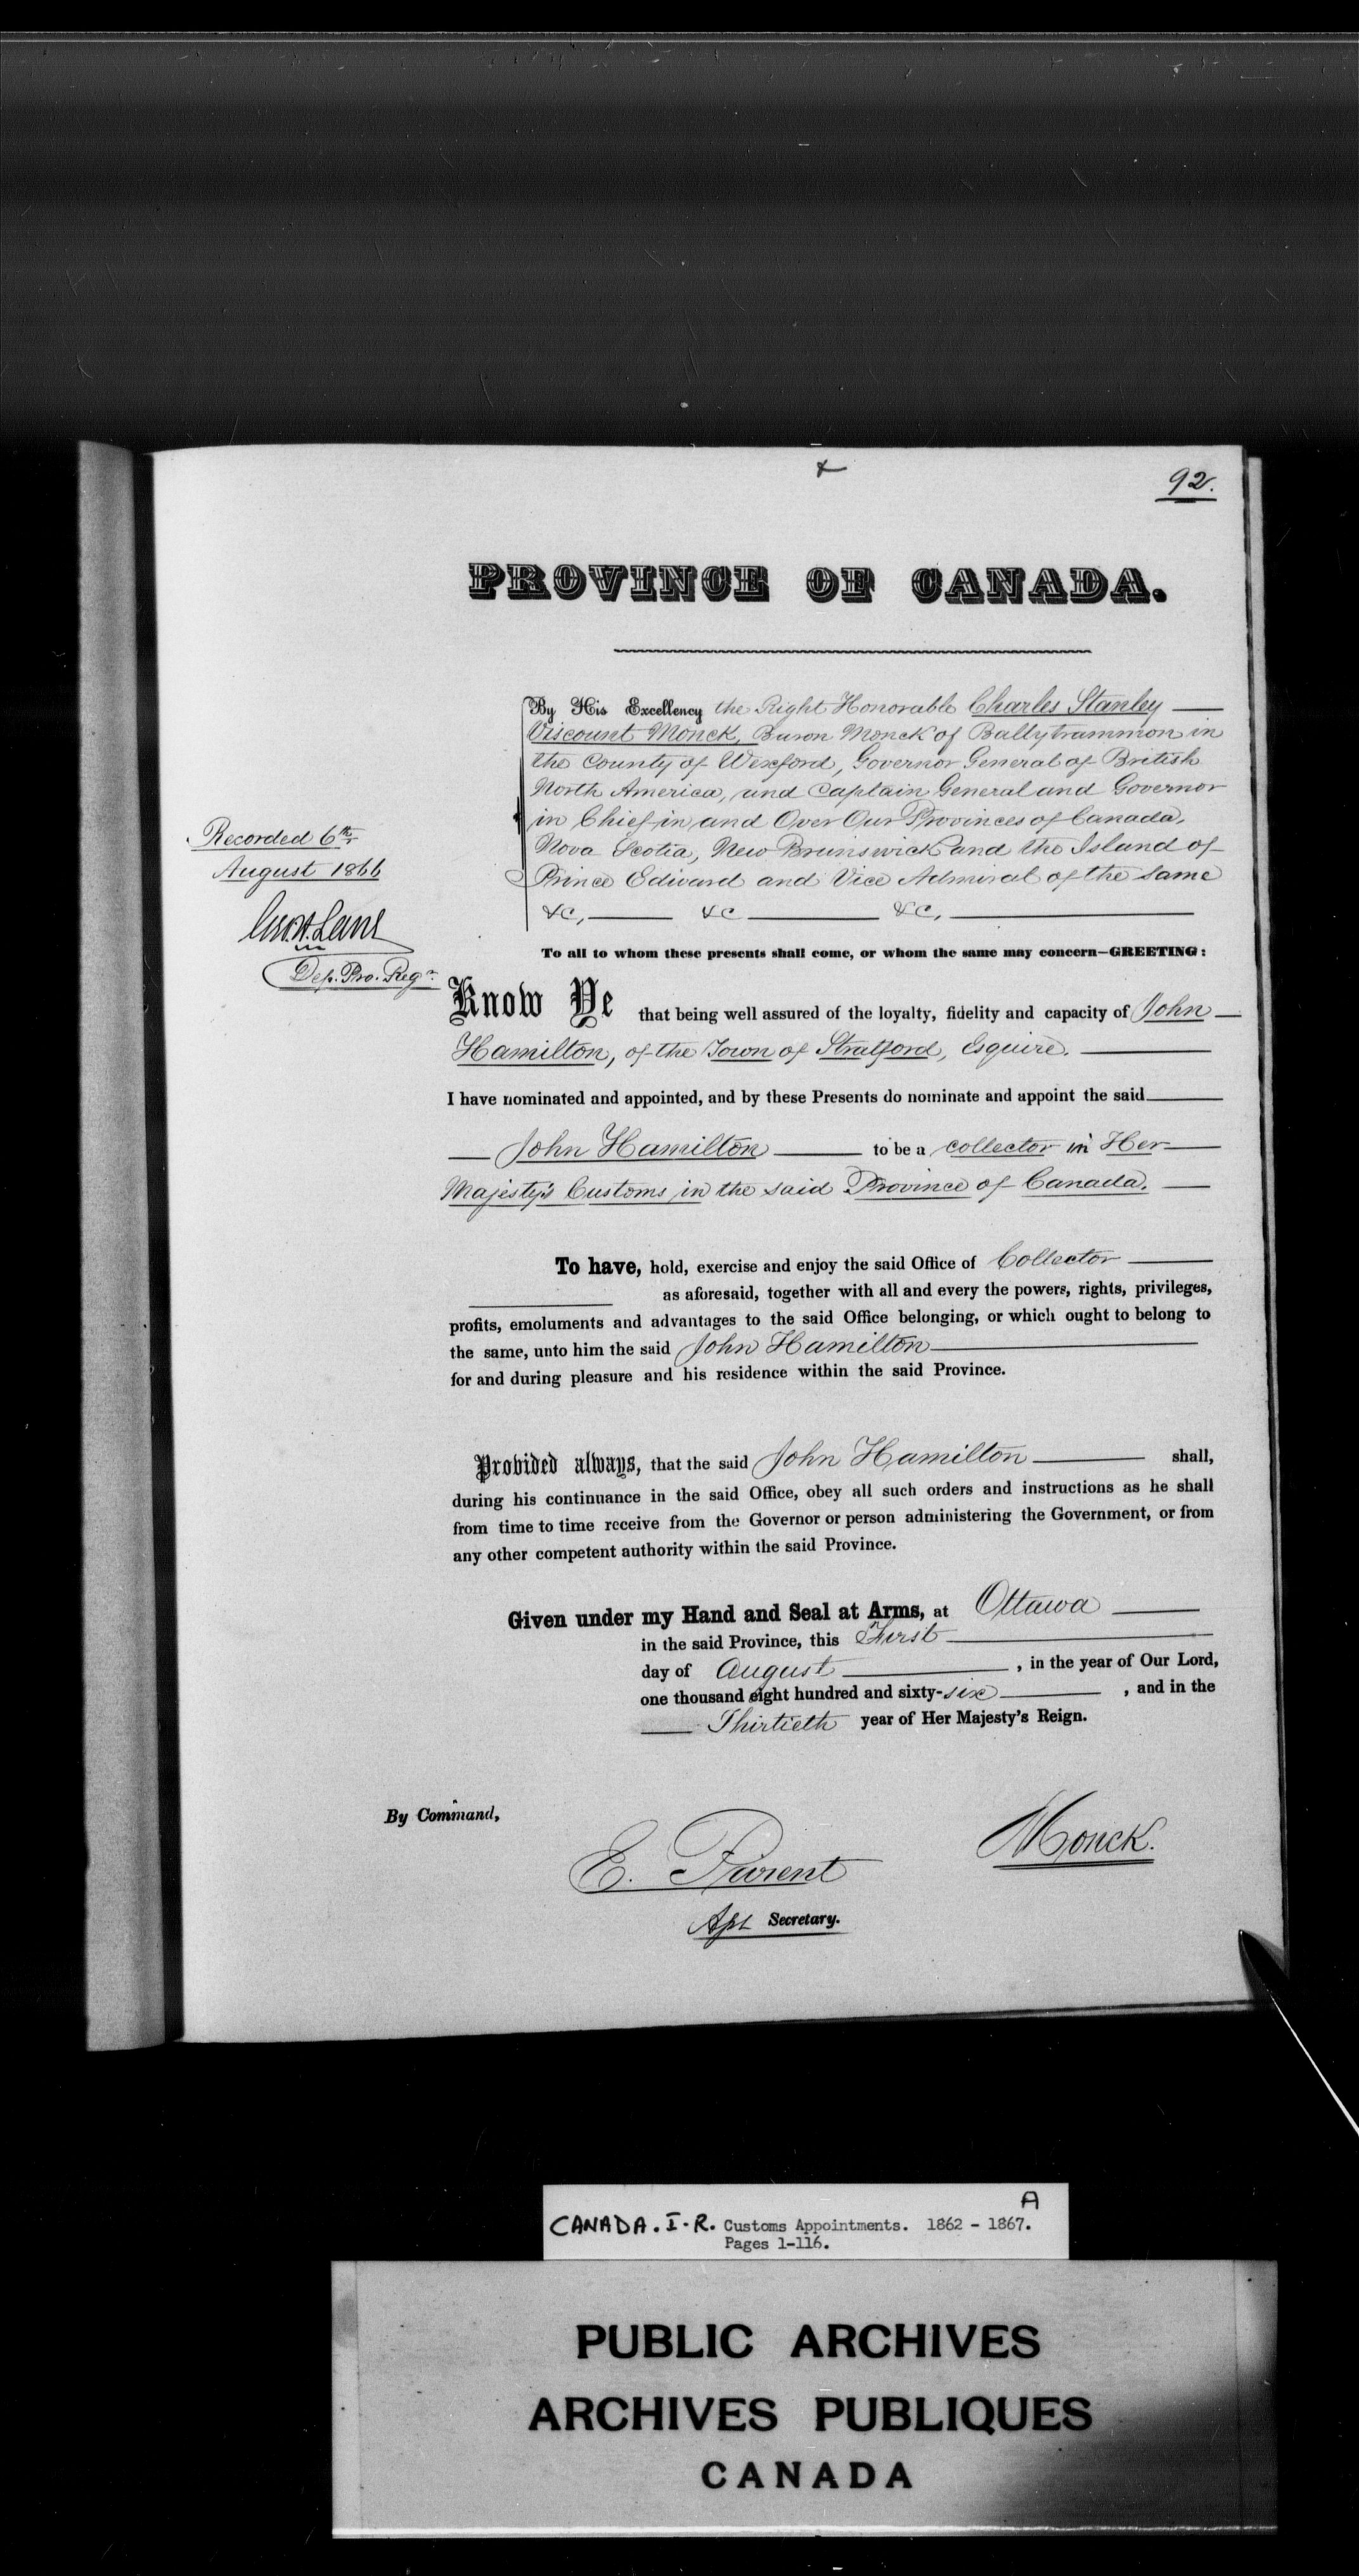 92.
PROVINCE OF CANADA.
By His Excellency the Right Honorable Charles Stanley
Viscount Monck, Baron Monck of Ballytrammon in
the County of Wexford, Governor General of British
North America, and Captain General and Governor
in Chief in and Over Our Provinces of Canada,
Nova Scotia, New Brunswick and the Island of
Prince Edward and Vice Admiral of the same
&c, &c &c,
Recorded 6th
August 1866
Lane
Dep. Pro. Regr.
To all to whom these presents shall come, or whom the same may concern—GREETING:
Know Ye that being well assured of the loyalty, fidelity and capacity of John
Hamilton, of the Town of Stratford, Esquire.
I have nominated and appointed, and by these Presents do nominate and appoint the said
John Hamilton to be a collector in Her
Majesty's Customs in the said Province of Canada.
To have, hold, exercise and enjoy the said Office of Collector
as aforesaid, together with all and every the powers, rights, privileges,
profits, emoluments and advantages to the said Office belonging, or which ought to belong to
the same, unto him the said John Hamilton
for and during pleasure and his residence within the said Province.
Provided always, that the said John Hamilton shall,
during his continuance in the said Office, obey all such orders and instructions as he shall
from time to time receive from the Governor or person administering the Government, or from
any other competent authority within the said Province.
Given under my Hand and Seal at Arms, at Ottawa
in the said Province, this First
day of August, in the year of Our Lord,
one thousand eight hundred and sixty-six, and in the
Thirtieth year of Her Majesty's Reign.
By Command,
Monck.
E. Parent
Secretary.
A
CANADA. I-R. Customs Appointments. 1862 - 1867.
Pages 1-116.
PUBLIC ARCHIVES
ARCHIVES PUBLIQUES
CANADA